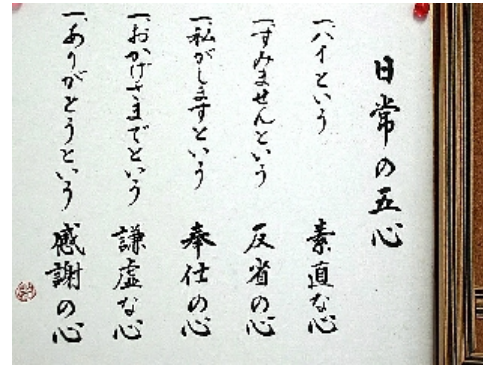 日常の五心
一、ハイという 素直な心
一、すみませんという 反省の心
一、私がしますという 奉仕の心
一、おかげさまでという 謙虚な心
一、ありがとうという 感謝の心